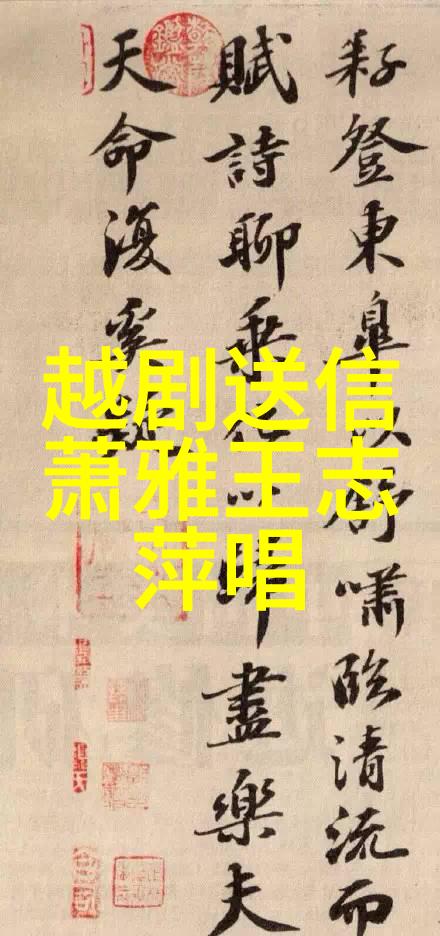 越剧送信
萧雅王志
萍唱
耔登東皋以舒嘯臨清流而
賦詩聊乘化以歸盡樂夫
天命復奚